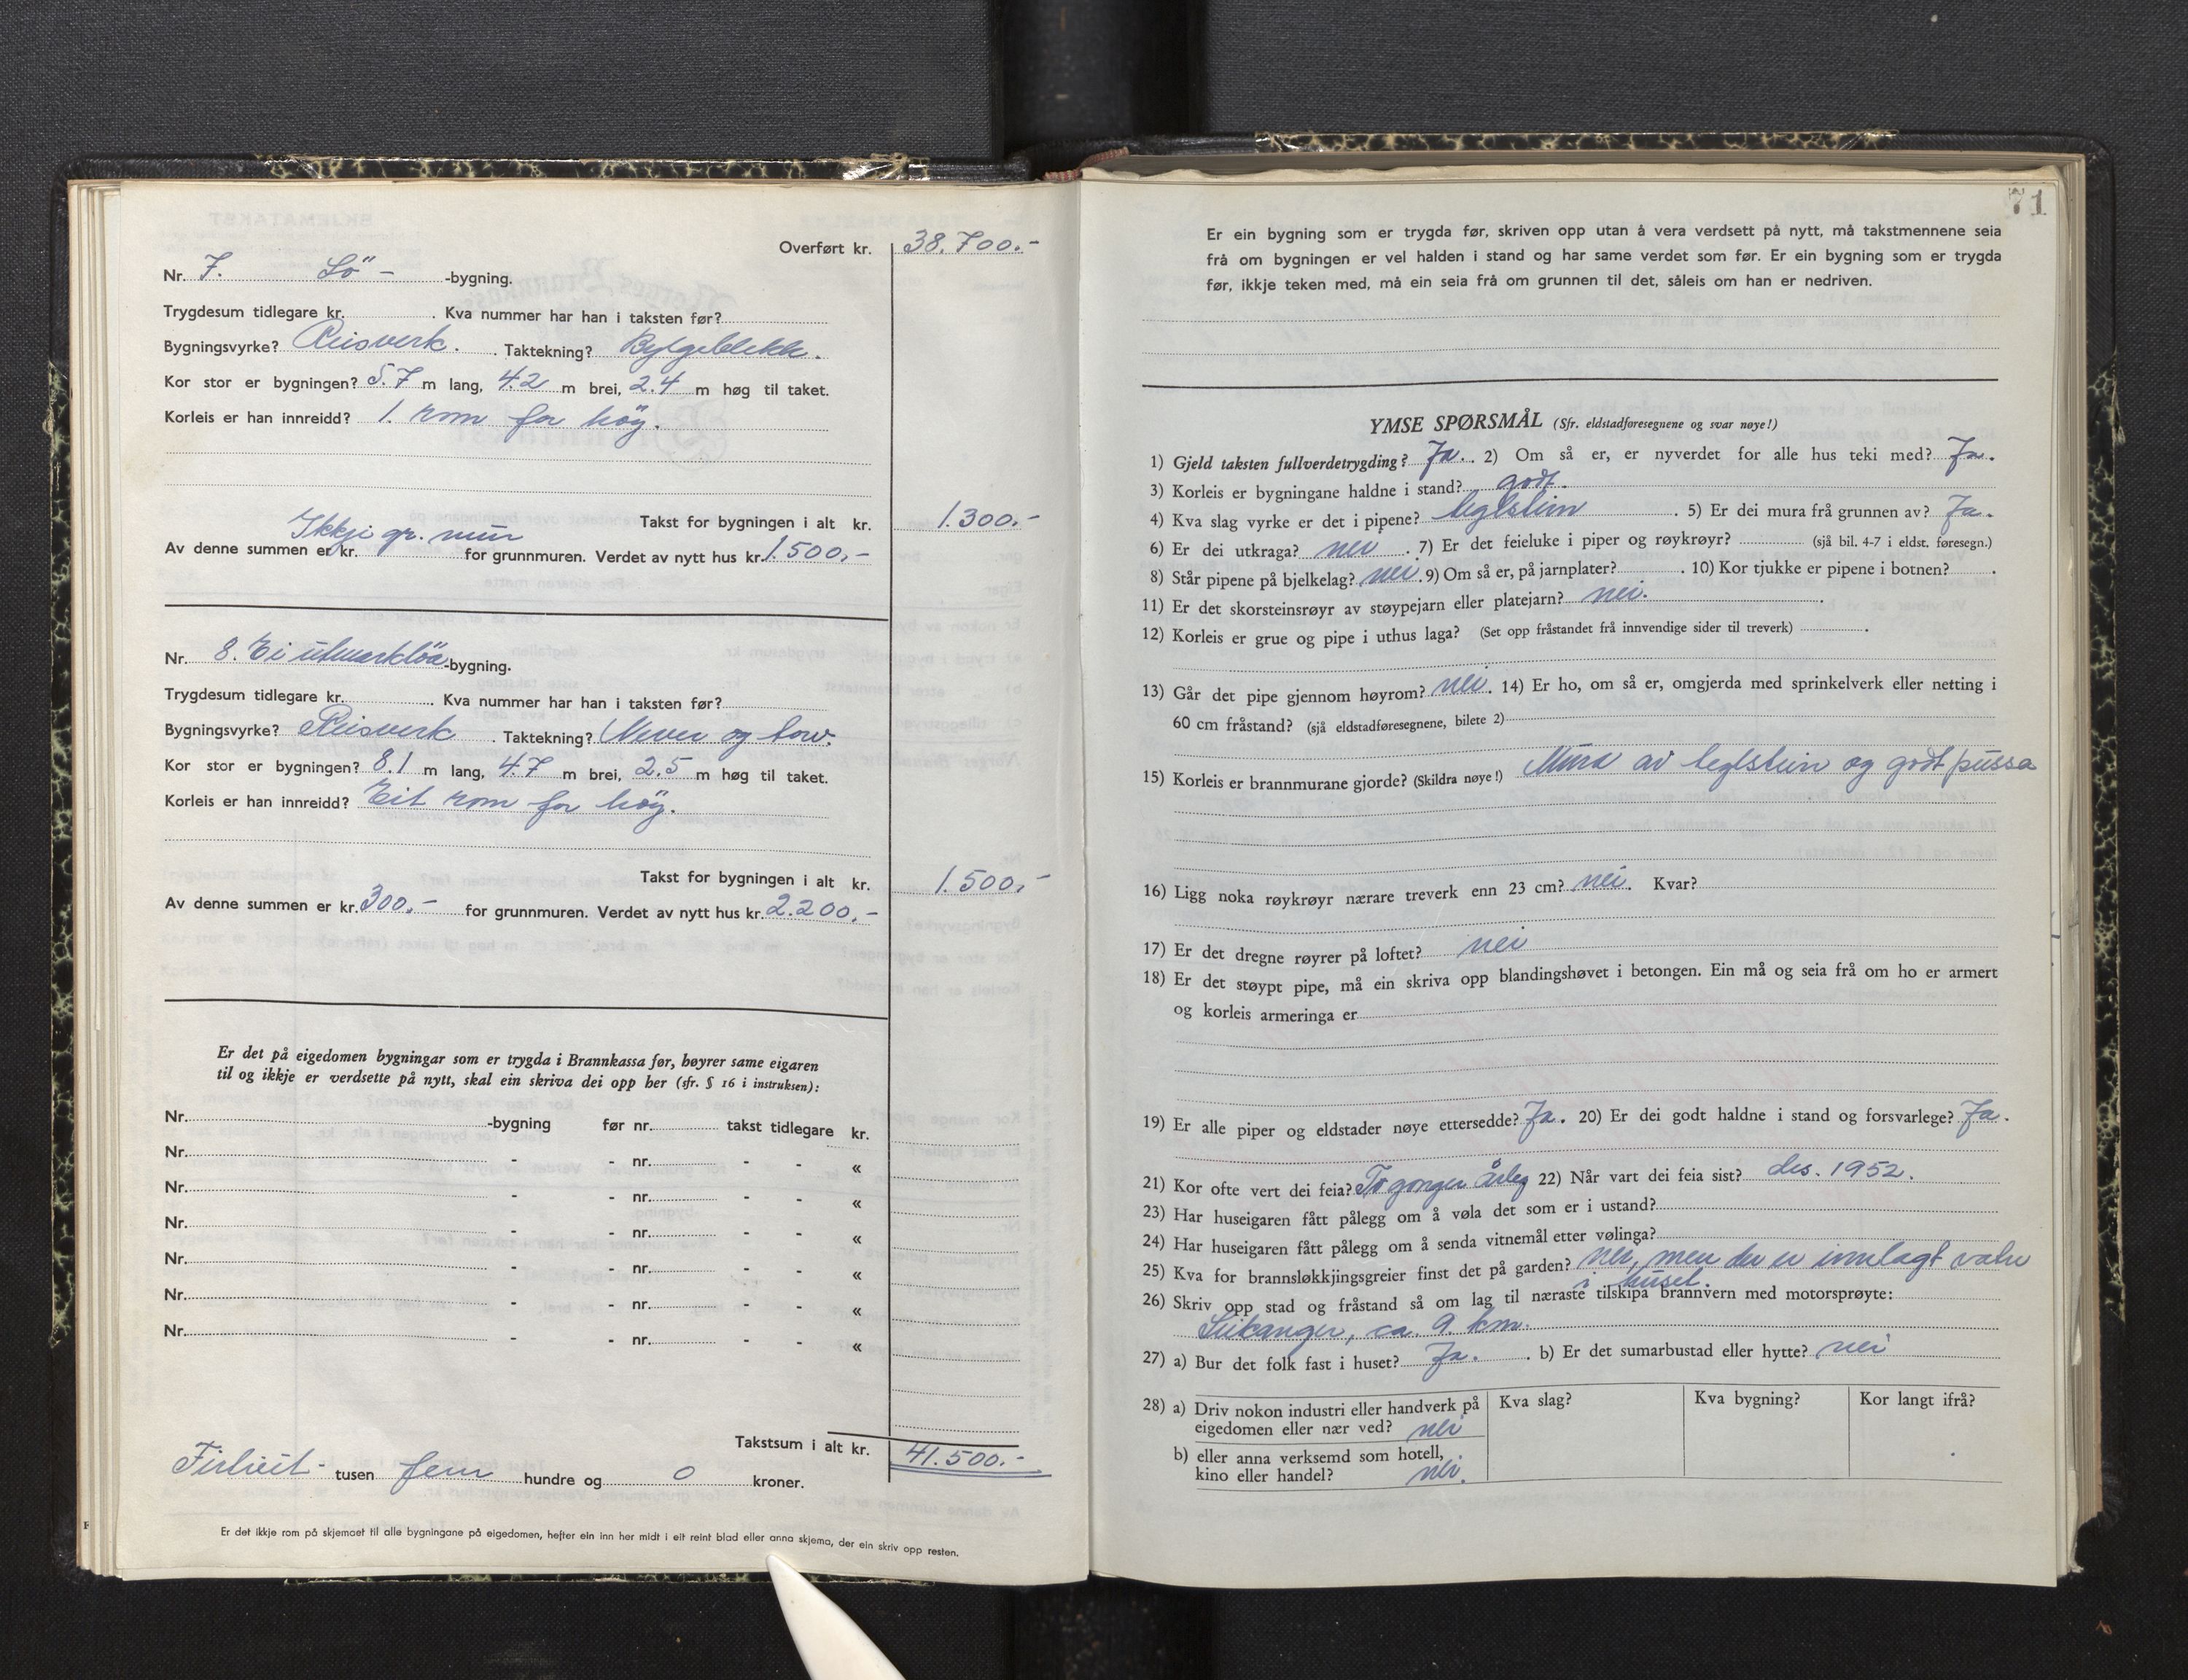 Overført kr. 38.700.-
Nr. 7. Lö- -bygning.
Trygdesum tidlegare kr. . Kva nummer har han i taksten før?
Bygningsvyrke? Reisverk. . Taktekning? Bylgeblekk.
Kor stor er bygningen? 5.7 m lang, 4.2 m brei, 2.4 m høg til taket.
Korleis er han innreidd? 1. rom for höy.
Takst for bygningen i alt kr. 1.300.-
Ikkje gr. mur
Av denne summen er kr. for grunnmuren. Verdet av nytt hus kr. 1.500,-
Nr. 8. Ei utmarklöa -bygning.
Trygdesum tidlegare kr. . Kva nummer har han i taksten før?
Bygningsvyrke? Reisverk . Taktekning? Never og torv.
Kor stor er bygningen? 8.1 m lang, 4.7 m brei, 2.5 m høg til taket.
Korleis er han innreidd? Eit rom for höy.
Takst for bygningen i alt kr. 1.500,-
Av denne summen er kr. 300.- for grunnmuren. Verdet av nytt hus kr. 2.200,-
Er det på eigedomen bygningar som er trygda i Brannkassa før, høyrer same eigaren
til og ikkje er verdsette på nytt, skal ein skriva dei opp her (sfr. § 16 i instruksen):
Nr. -bygning før nr. takst tidlegare kr.
Nr. - - nr. - - «
Nr. - - nr. - - «
Nr. - - nr. - - «
Nr. - - nr. - - «
Nr. - - nr. - - «
Nr. - - nr. - - «
Takstsum i alt kr. 41.500.-
Firtieit- tusen fem hundre og 0 kroner.
Er det ikkje rom på skjemaet til alle bygningane på eigedomen, hefter ein inn her midt i eit reint blad eller anna skjema, der ein skriv opp resten.
71
Er ein bygning som er trygda før, skriven opp utan å vera verdsett på nytt, må takstmennene seia
frå om bygningen er vel halden i stand og har same verdet som før. Er ein bygning som er trygda
før, ikkje teken med, må ein seia frå om grunnen til det, såleis om han er nedriven.
YMSE SPØRSMÅL (Sfr. eldstadføresegnene og svar nøye!)
1) Gjeld taksten fullverdetrygding? Ja. . 2) Om så er, er nyverdet for alle hus teki med? Ja.
3) Korleis er bygningane haldne i stand? godt.
4) Kva slag vyrke er det i pipene? teglstein . 5) Er dei mura frå grunnen av? Ja.
6) Er dei utkraga? nei . 7) Er det feieluke i piper og røykrøyr? (sjå bil. 4-7 i eldst. føresegn.)
8) Står pipene på bjelkelag? nei. 9) Om så er, på jarnplater? . 10) Kor tjukke er pipene i botnen? .
11) Er det skorsteinsrøyr av støypejarn eller platejarn? nei. .
12) Korleis er grue og pipe i uthus laga? (Set opp fråstandet frå innvendige sider til treverk) .
13) Går det pipe gjennom høyrom? nei. 14) Er ho, om så er, omgjerda med sprinkelverk eller netting i
60 cm fråstand? (sjå eldstadføresegnene, bilete 2)
15) Korleis er brannmurane gjorde? (Skildra nøye!) Mura av teglstein og godt pussa
16) Ligg noka røykrøyr nærare treverk enn 23 cm? nei. Kvar?
17) Er det dregne røyrer på loftet? nei
18) Er det støypt pipe, må ein skriva opp blandingshøvet i betongen. Ein må og seia frå om ho er armert
og korleis armeringa er
19) Er alle piper og eldstader nøye ettersedde? Ja. 20) Er dei godt haldne i stand og forsvarlege? Ja.
21) Kor ofte vert dei feia? To gonger årleg 22) Når vart dei feia sist? des. 1952.
23) Har huseigaren fått pålegg om å vøla det som er i ustand?
24) Har huseigaren fått pålegg om å senda vitnemål etter vølinga?
25) Kva for brannsløkkjingsgreier finst det på garden? nei, men der er innlagt vatn
i huset.
26) Skriv opp stad og fråstand så om lag til næraste tilskipa brannvern med motorsprøyte:
Leikanger, ca. 9. km.
27) a) Bur det folk fast i huset? Ja. . b) Er det sumarbustad eller hytte? nei
28) a) Driv nokon industri eller handverk på Kva slag? Kva bygning? Kor langt ifrå?
eigedomen eller nær ved? nei
b) eller anna verksemd som hotell,
kino eller handel? nei.